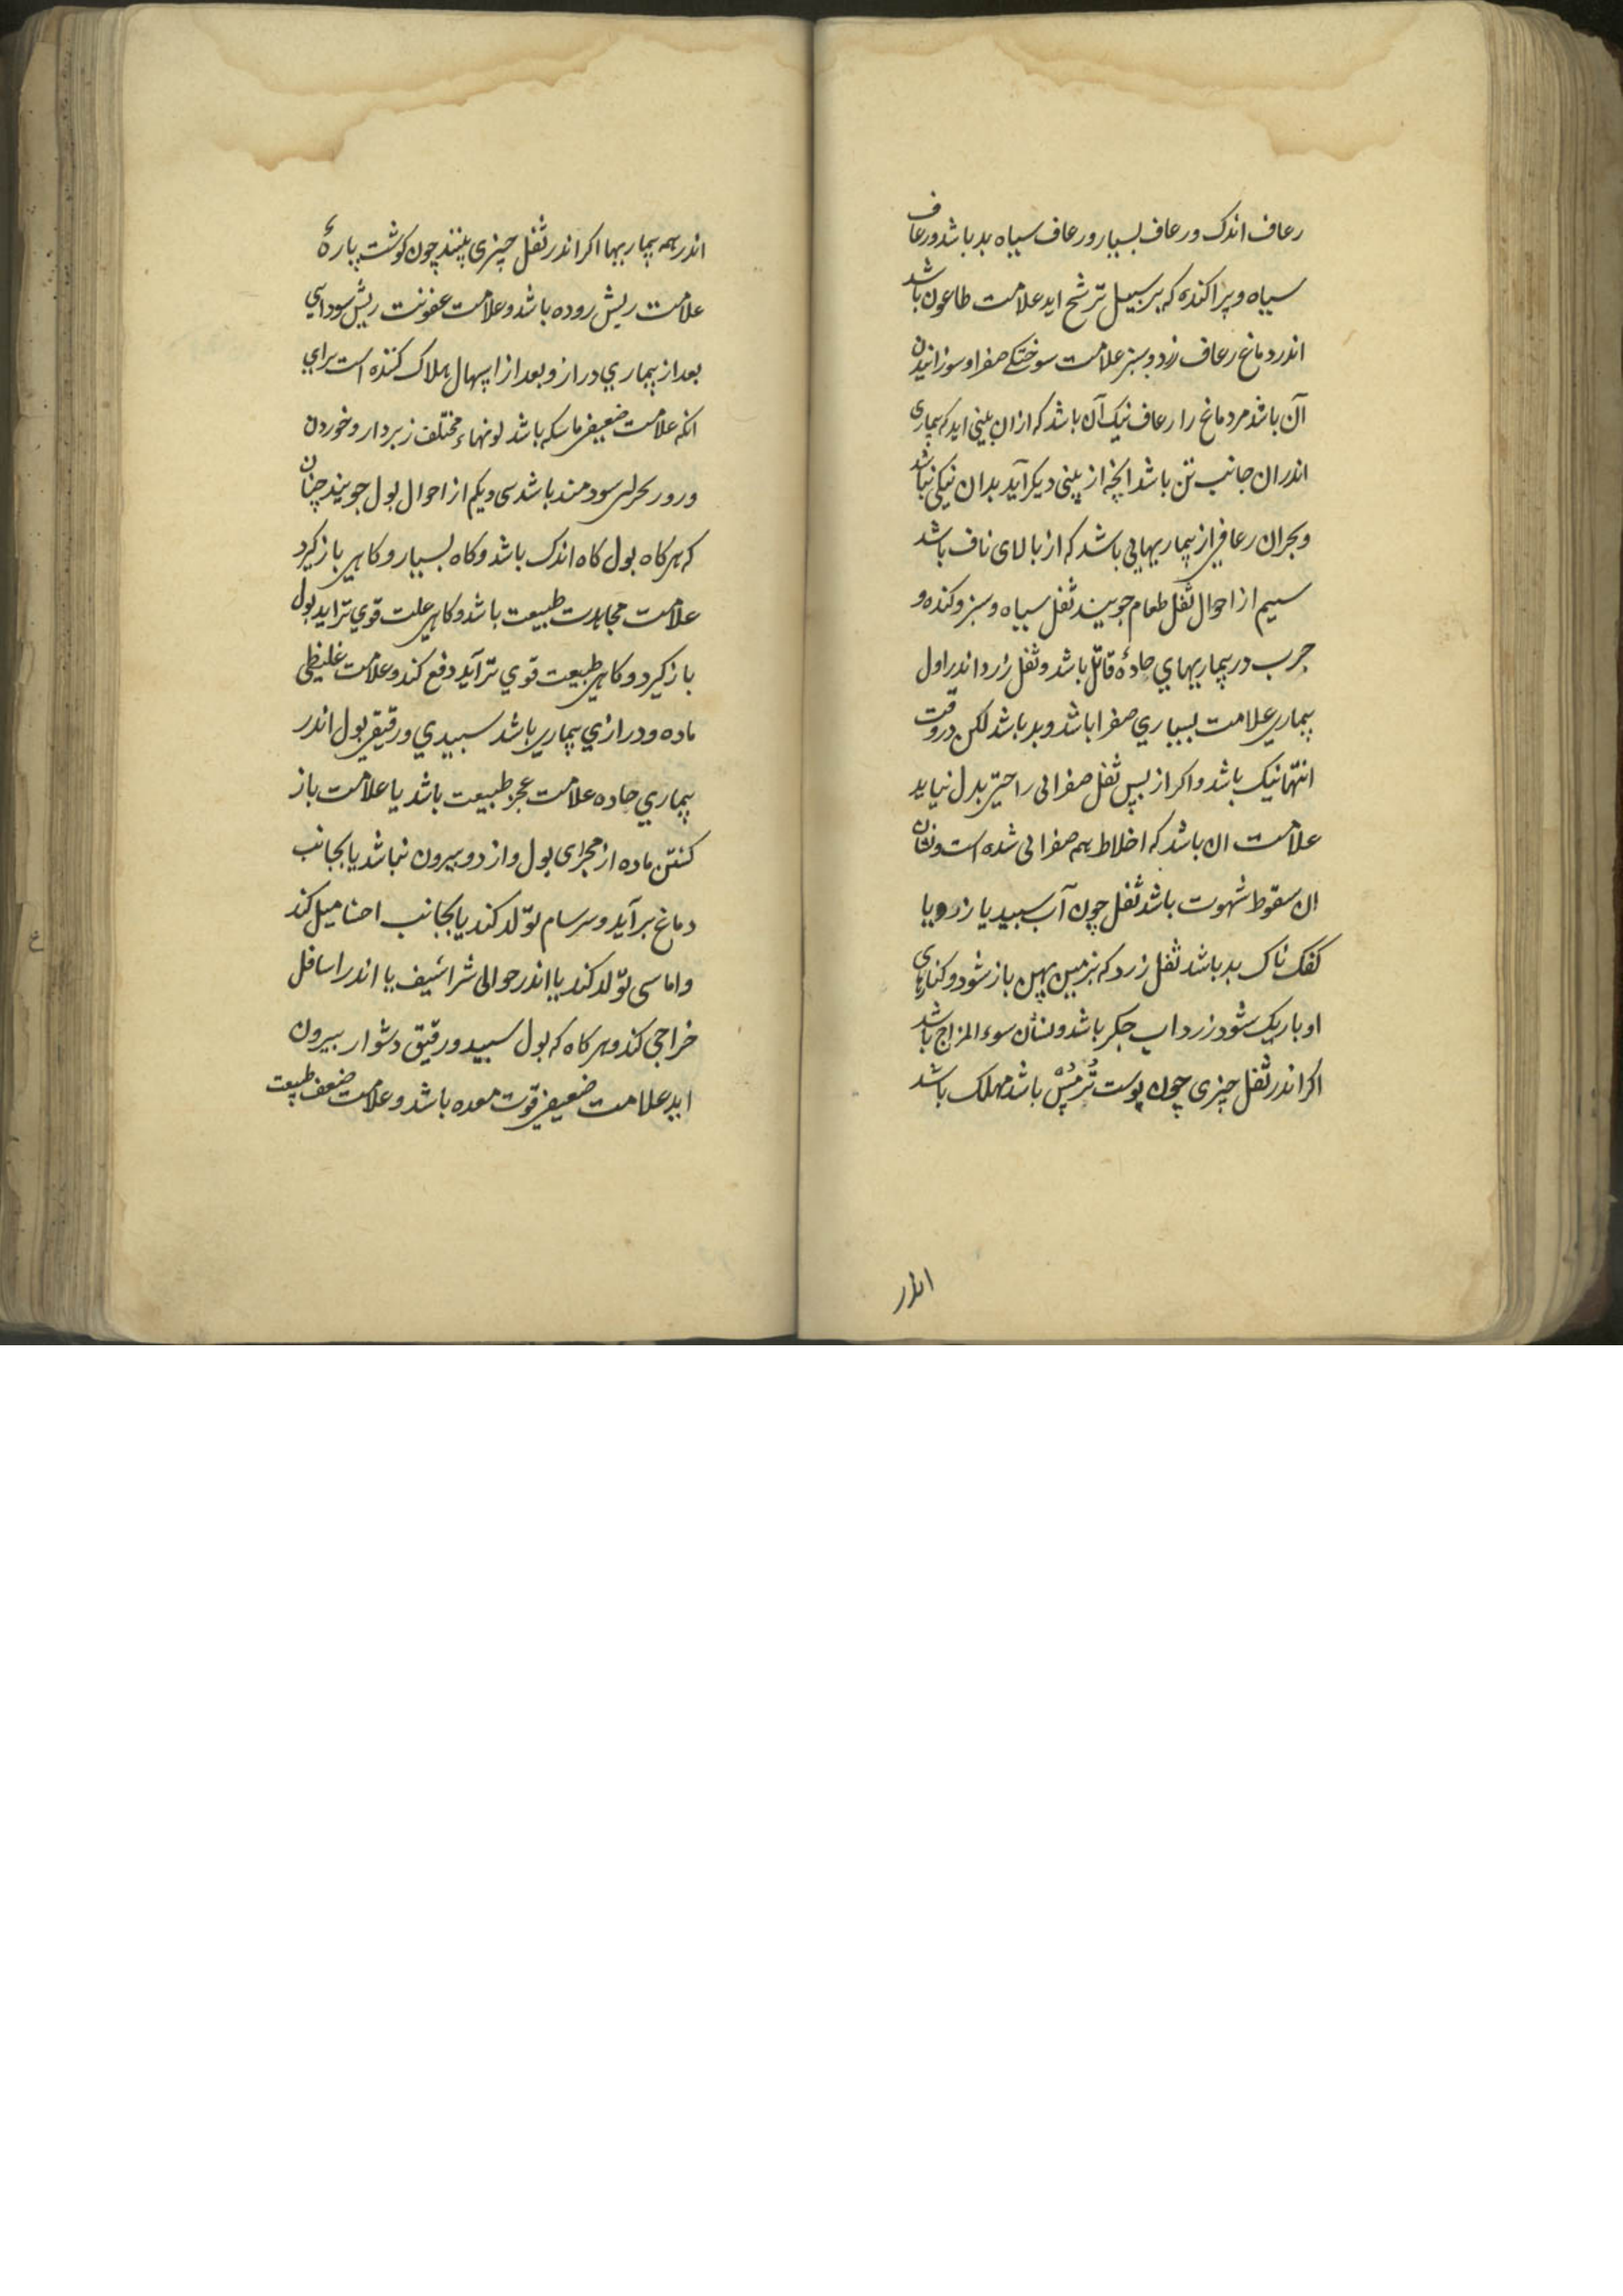 رعاف اندک ورعاف بسیار ورعاف سیاه بد باشد ورعاف
سیاه وپراکنده که بر سبیل ترشح اید علامت طاعون باشد
اندر دماغ رعاف زرد وسبز علامت سوختکے صفرا وسوزانیدن
آن باشد مر دماغ را رعاف نیک آن باشد که ازان بینی اید که بیماری
اندران جانب تن باشد انچه از بینی دیکر آید بدان نیکی نباشد
وبحران رعافی از بیماریهایی باشد که از بالای ناف باشد
سیم از احوال ثفل طعام جویند ثفل سیاه وسبز وکنده و
چرب در بیماریهاي حادهٔ قاتل باشد وثفل زرد اندر اول
بیماري علامت بسیاري صفرا باشد وبد باشد لکن در وقت
انتها نیک باشد واکر از پس ثفل صفرائی راحتی بدل نیاید
علامت ان باشد که اخلاط همه صفرائی شده است ونشان
ان سقوط شهوت باشد ثفل چون آب سپید یا زرد یا
کفک ناک بد باشد ثفل زرد که بزمین پهن باز شود وکنارهای
او باریک شود زرداب جکر باشد ونشان سوء المزاج باشد
اکر اندر ثفل چیزی چون پوست تُرمُسْ باشد مهلک باشد
اندر
اندر همه بیماریها اکر اندر ثفل چیزی بینند چون کوشت پارهٔ
علامت ریش روده باشد وعلامت عفونت ریش سودایي
بعد از بیماري دراز وبعد از اسهال هلاک کننده است براي
انکه علامت ضعیفی ماسکه باشد لونهاء مختلف زبردار وخوردن
ورور بحرانی سودمند باشد سی ویکم از احوال بول جویند چنان
که هرکاه بول کاه اندک باشد وکاه بسیار وکاهی باز کیرد
علامت مجاهدت طبیعت باشد وکاهی علت قوي تر اید بول
باز کیرد وکاهی طبیعت قوي تر آید دفع کند وعلامت غلیظی
ماده ودرازي بیماري باشد سپیدي ورقیقی بول اندر
بیماري حاده علامت عجز طبیعت باشد یا علامت باز
کشتن ماده از مجرای بول واز دو بیرون نباشد یا بجانب
دماغ برآید وسرسام تولد کند یا بجانب احشا میل کند
واماسی تولد کند یا اندر حوالی شراشیف یا اندر اسافل
خراجی کند وهرکاه که بول سپید ورقیق دشوار بیرون
اید علامت ضعیفی قوت معده باشد وعلامت ضعف طبیعت